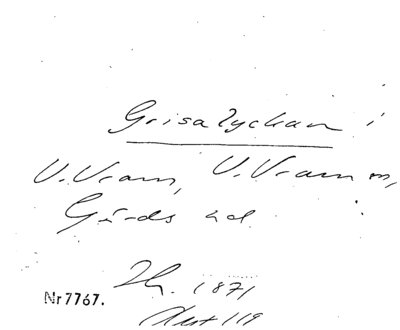 Grisalyckan i
V. Vram, V. Vram sn,
Gärds hd
Nr 7767.
1871
119